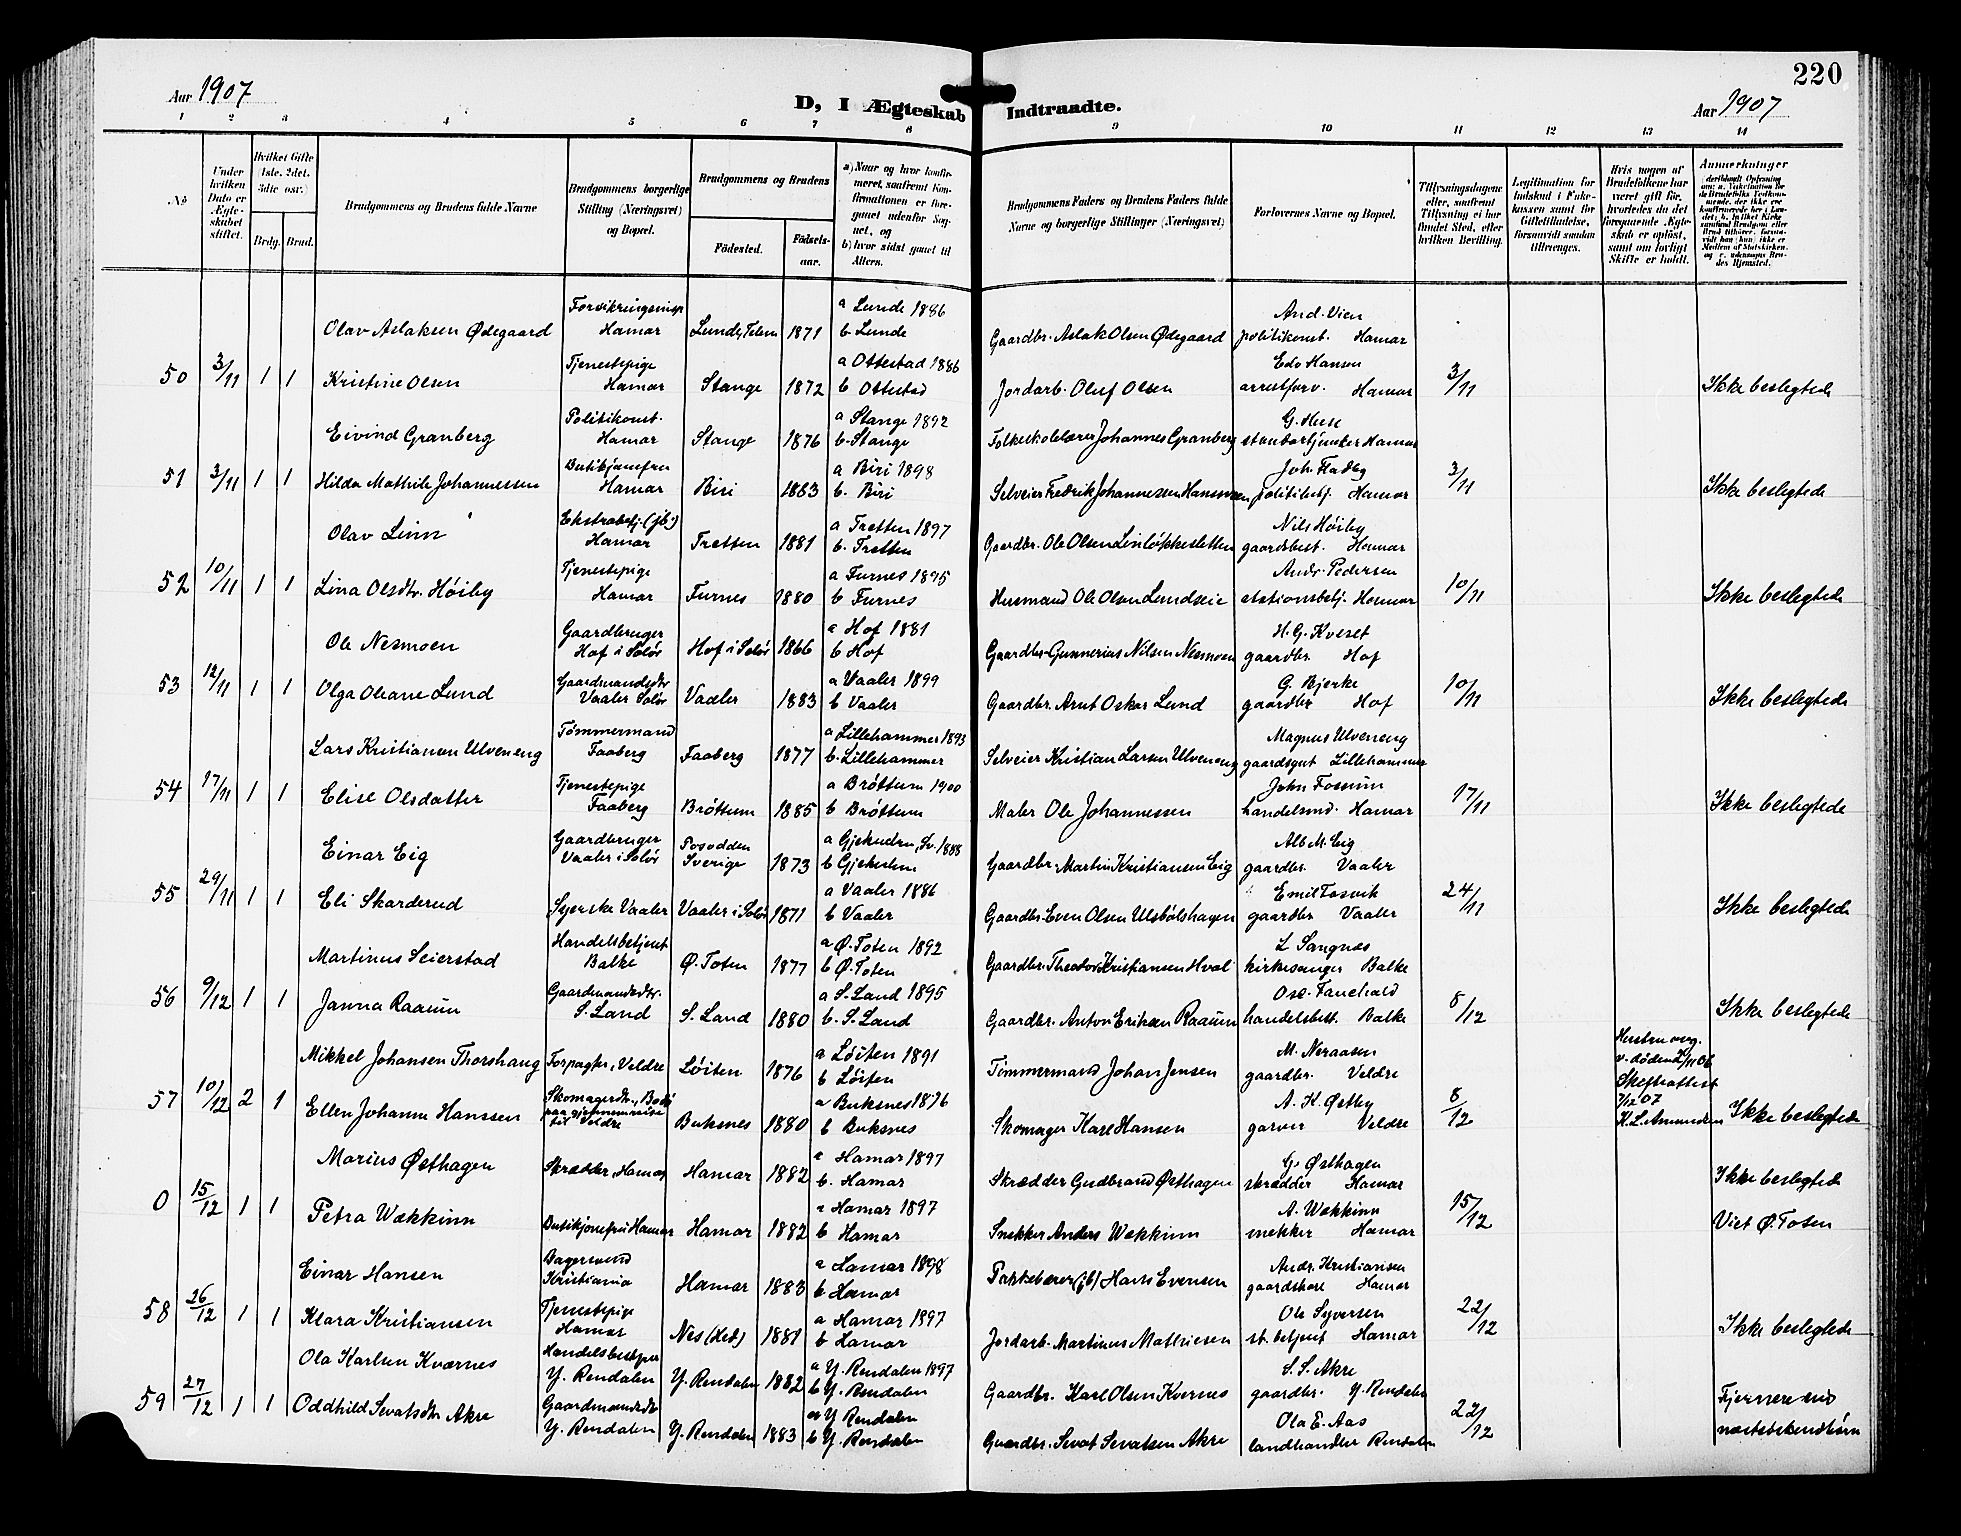 220
Aar 1907
D, I Ægteskab Indtraadte.
Aar 1907
1 2 3 4 5 6 7 8 9 10 11 12 13 14
No
Under hvilken Dato er Ægteskabet stiftet.
Hvilket Gifte (1ste, 2det, 3die osv.)
Brdg. Brud.
Brudgommens og Brudens fulde Navne
Brudgommens borgerlige Stilling (Næringsvei) og Bopæl.
Brudgommens og Brudens
Fødested. Fødselsaar.
a) Naar og hvor konfirmeret, saafremt Konfirmationen er foregaaet udenfor Sognet, og
b) hvor sidst gaaet til Alters.
Brudgommens Faders og Brudens Faders fulde Navne og borgerlige Stillinger (Næringsvei)
Forlovernes Navne og Bopæl.
Tillysningsdagene eller, saafremt Tillysning ei har fundet Sted, efter hvilken Bevilling.
Legitimation for Indskud i Enkekassen samt for Giftetilladelse, forsaavidt saadan tiltrænges.
Hvis nogen af Brudefolkene har været gift før, hvorledes da det foregaaende Ægteskab er opløst, samt om lovligt Skifte er holdt.
Anmerkninger
Olav Aslaksen Ødegaard Hamar Lunde, Telem 1871 a Lunde 1886 b Lunde Gaardbr. Aslak Olsen Ødegaard And. Vien politikonst. Hamar
50 3/11 1 1 Kristine Olsen Tjenestepige Hamar Stange 1872 a Ottestad 1886 b Ottestad Jordarb. Oluf Olsen Edv Hansen arrestforv. Hamar 3/11 Ikke beslegtede
Eivind Granberg Politikonst. Hamar Stange 1876 a Stange 1892 b. Stange Folkeskolelærer Johannes Granberg G. Huse Hamar
51 3/11 1 1 Hilda Mathile Johannessen Butikjomfru Hamar Biri 1883 a Biri 1898 b. Biri Selveier Fredrik Johannessen Joh. Fladby politibetj. Hamar 3/11 Ikke beslegtede
Olav Linn Ekstrabetj. (jb.) Hamar Tretten 1881 a Tretten 1897 b. Tretten Gaardbr. Ole Olsen Linløkkesletten Nils Høiby gaardsbest. Hamar
52 10/11 1 1 Lina Olsdtr. Høiby Tjenestepige Hamar Furnes 1880 a Furnes 1895 b Furnes Husmand Ole Olsen Lundseie Andr. Pedersen stationsbetj. Hamar 10/11 Ikke beslegtede
Ole Nesmoen Gaardbruger Hof i Solør Hof i Solør 1866 a Hof 1881 b Hof Gaardbr. Gunnerius Nilsen Nesmoen H. G. Kveset gaardbr. Hof
53 12/11 1 1 Olga Oleane Lund Gaardmandsdtr Vaaler Solør Vaaler 1883 a Vaaler 1899 b Vaaler Gaardbr. Arnt Oskar Lund G. Bjerke gaardbr Hof 10/11 Ikke beslegtede
Lars Kristiansen Ulveneng Tømmermand Faaberg Faaberg 1877 a Lillehammer 1893 b. Lillehammer Selveier Kristian Larsen Ulveneng Magnus Ulveneng gaardsgut Lillehammer
54 17/11 1 1 Elise Olsdatter Tjenestepige Faaberg Brøttum 1885 a Brøttum 1900 b Brøttum Maler Ole Johannessen John Fossum handelsmd. Hamar 17/11 Ikke beslegtede
Einar Eig Gaardbruger Vaaler i Solør Sverige 1873 Gaardbr. Martin Kristiansen Eig Alb M. Eig gaardbr. Vaaler
55 29/11 1 1 Eli Skarderud Syerske Vaaler Vaaler i Solør 1871 a Vaaler 1886 b Vaaler Gaardbr. Even Olsen Ulsbølshagen Emil Tosvik gaardbr Vaaler 24/11 Ikke beslegtede
Martinus Seierstad Handelsbetjent Balke Ø. Toten 1877 a Ø. Toten 1892 b Ø. Toten Gaardbr. Theodor Kristiansen Hval L Sangnæs kirkesanger Balke
56 9/12 1 1 Janna Raaum Gaardmandsdtr. S. Land S. Land 1880 a S. Land 1895 b. S. Land Gaardbr. Anton Eriksen Raaum handelsbest. Balke 8/12 Ikke beslegtede
Mikkel Johansen Thorshaug Forpagter, Veldre Løiten 1876 a Løiten 1891 b Løiten Tømmermand Johan Jensen M. Neraasen gaardbr. Veldre
57 10/12 2 1 Ellen Johanne Hanssen Skomagerdtr., paa gjennemreise til Veldre Buksnes 1880 a Buksnes 1896 b Buksnes Skomager Karl Hansen A. K. Østby garver Veldre 8/12 Skifteattest 7/12 07 Ikke beslegtede
Marius Østhagen Skrædder, Hamar Hamar 1882 a Hamar 1897 b. Hamar Skrædder Gudbrand Østhagen G. Østhagen skrædder Hamar Ikke beslegtede
0 15/12 1 1 Petra Wækkinn Butikjomfru Hamar Hamar 1882 a Hamar 1897 b Hamar Snekker Anders Wækkinn A. Wækkinn snekker Hamar 15/12 Viet Ø. Toten
Einar Hansen Bagersvend Kristiania Hamar 1883 a Hamar 1898 b Hamar Pakkebærer (jb) Hans Evensen Andr. Kristiansen Hamar
58 26/12 1 1 Klara Kristiansen Tjenestepige Hamar Nes (Hed) 1881 a Hamar 1897 b Hamar Jordarb. Martinus Mathiesen Ole Syversen st. betjent Hamar 22/12 Ikke beslegtede
Ola Karlsen Kværnes Handelsbestyrer Y. Rendalen Y. Rendalen 1882 a Y. Rendalen 1897 b Y. Rendalen Gaardbr. Karl Olsen Kvernes S. S. Akre gaardbr. Y. Rendalen
59 27/12 1 1 Oddhild Sevatsdtr Akre Gaardmandsdtr Y. Rendalen Y. Rendalen 1883 a Y Rendalen b Y. Rendalen Gaardbr. Sevat Sevatsen Akre Ola E. Aas landhandler Rendalen 22/12 Fjernere end næstsøskendebørn